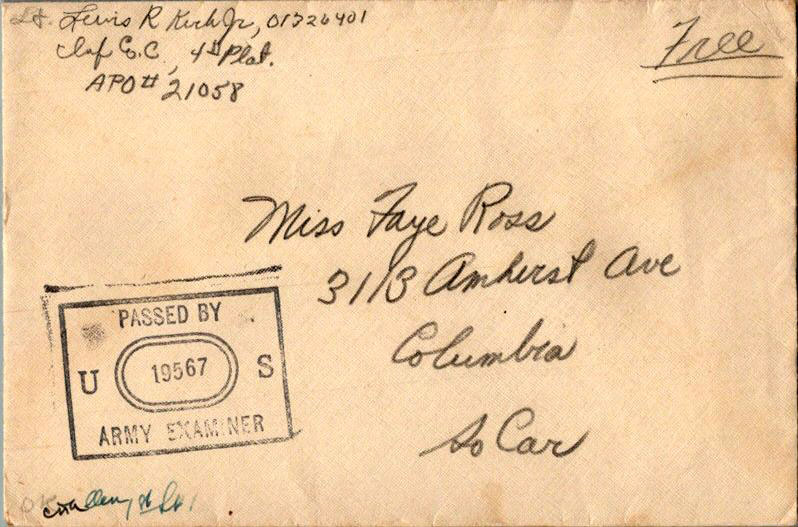 Lt. Lewis R Kirk Jr, 01326401
Inf Co. C, 4th Plat.
APO# 21058
Free
Miss Faye Ross
3113 Amherst Ave
Columbia
So Car
PASSED BY
U 19567 S
ARMY EXAMINER